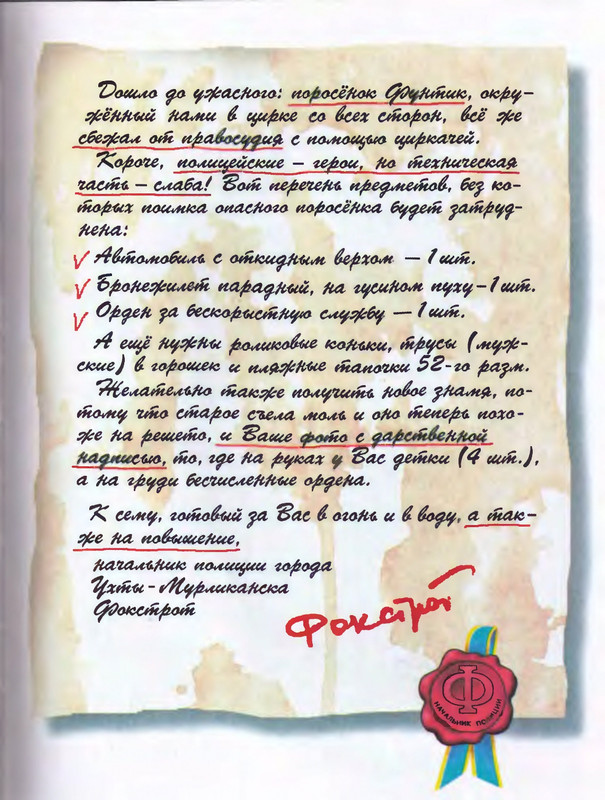 Дошло до ужасного: поросёнок Фунтик, окру-
жённый нами в цирке со всех сторон, всё же
сбежал от правосудия с помощью циркачей.
Короче, полицейские – герои, но техническая
часть – слаба! Вот перечень предметов, без ко-
торых поимка опасного поросёнка будет затруд-
нена:
Автомобиль с откидным верхом — 1 шт.
Бронежилет парадный, на гусином пуху – 1 шт.
Орден за бескорыстную службу — 1 шт.
А ещё нужны роликовые коньки, трусы (муж-
ские) в горошек и пляжные тапочки 52-го разм.
Желательно также получить новое знамя, по-
тому что старое съела моль и оно теперь похо-
же на решето, и Ваше фото с дарственной
надписью, то, где на руках у Вас детки (4 шт.),
а на груди бесчисленные ордена.
К сему, готовый за Вас в огонь и в воду, а так-
же на повышение,
начальник полиции города
Ухты-Мурликанска
Фокстрот
Фокстрот
Ф
НАЧАЛЬНИК ПОЛИЦИИ